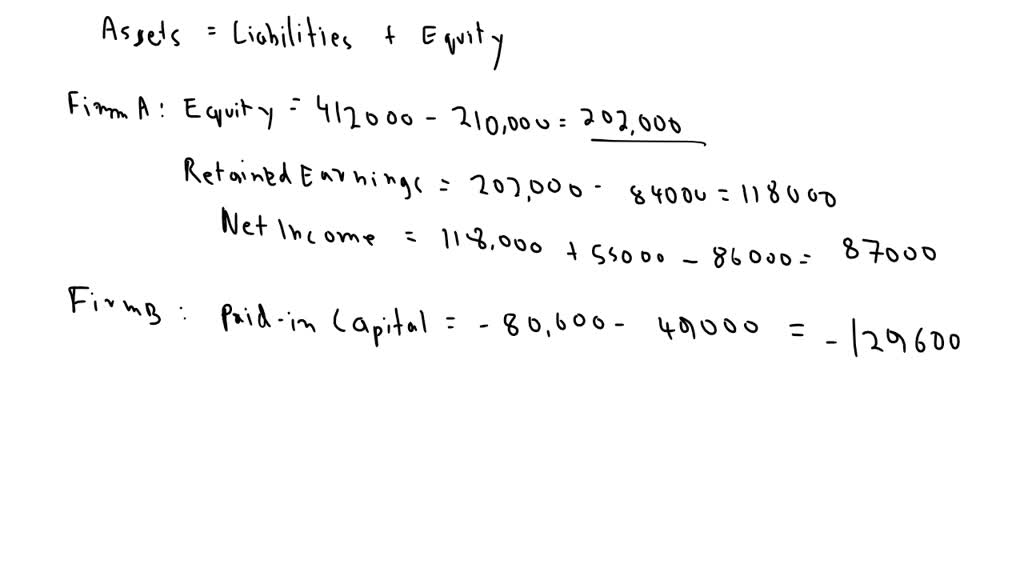 Assets = Liabilities + Equity
Firm A : Equity = 412000 - 210,000 = 202,000
Retained Earnings = 202,000 - 84000 = 118000
Net Income = 118,000 + 55000 - 86000 = 87000
Firm B : Paid-in Capital = - 80,600 - 49000 = - 129600